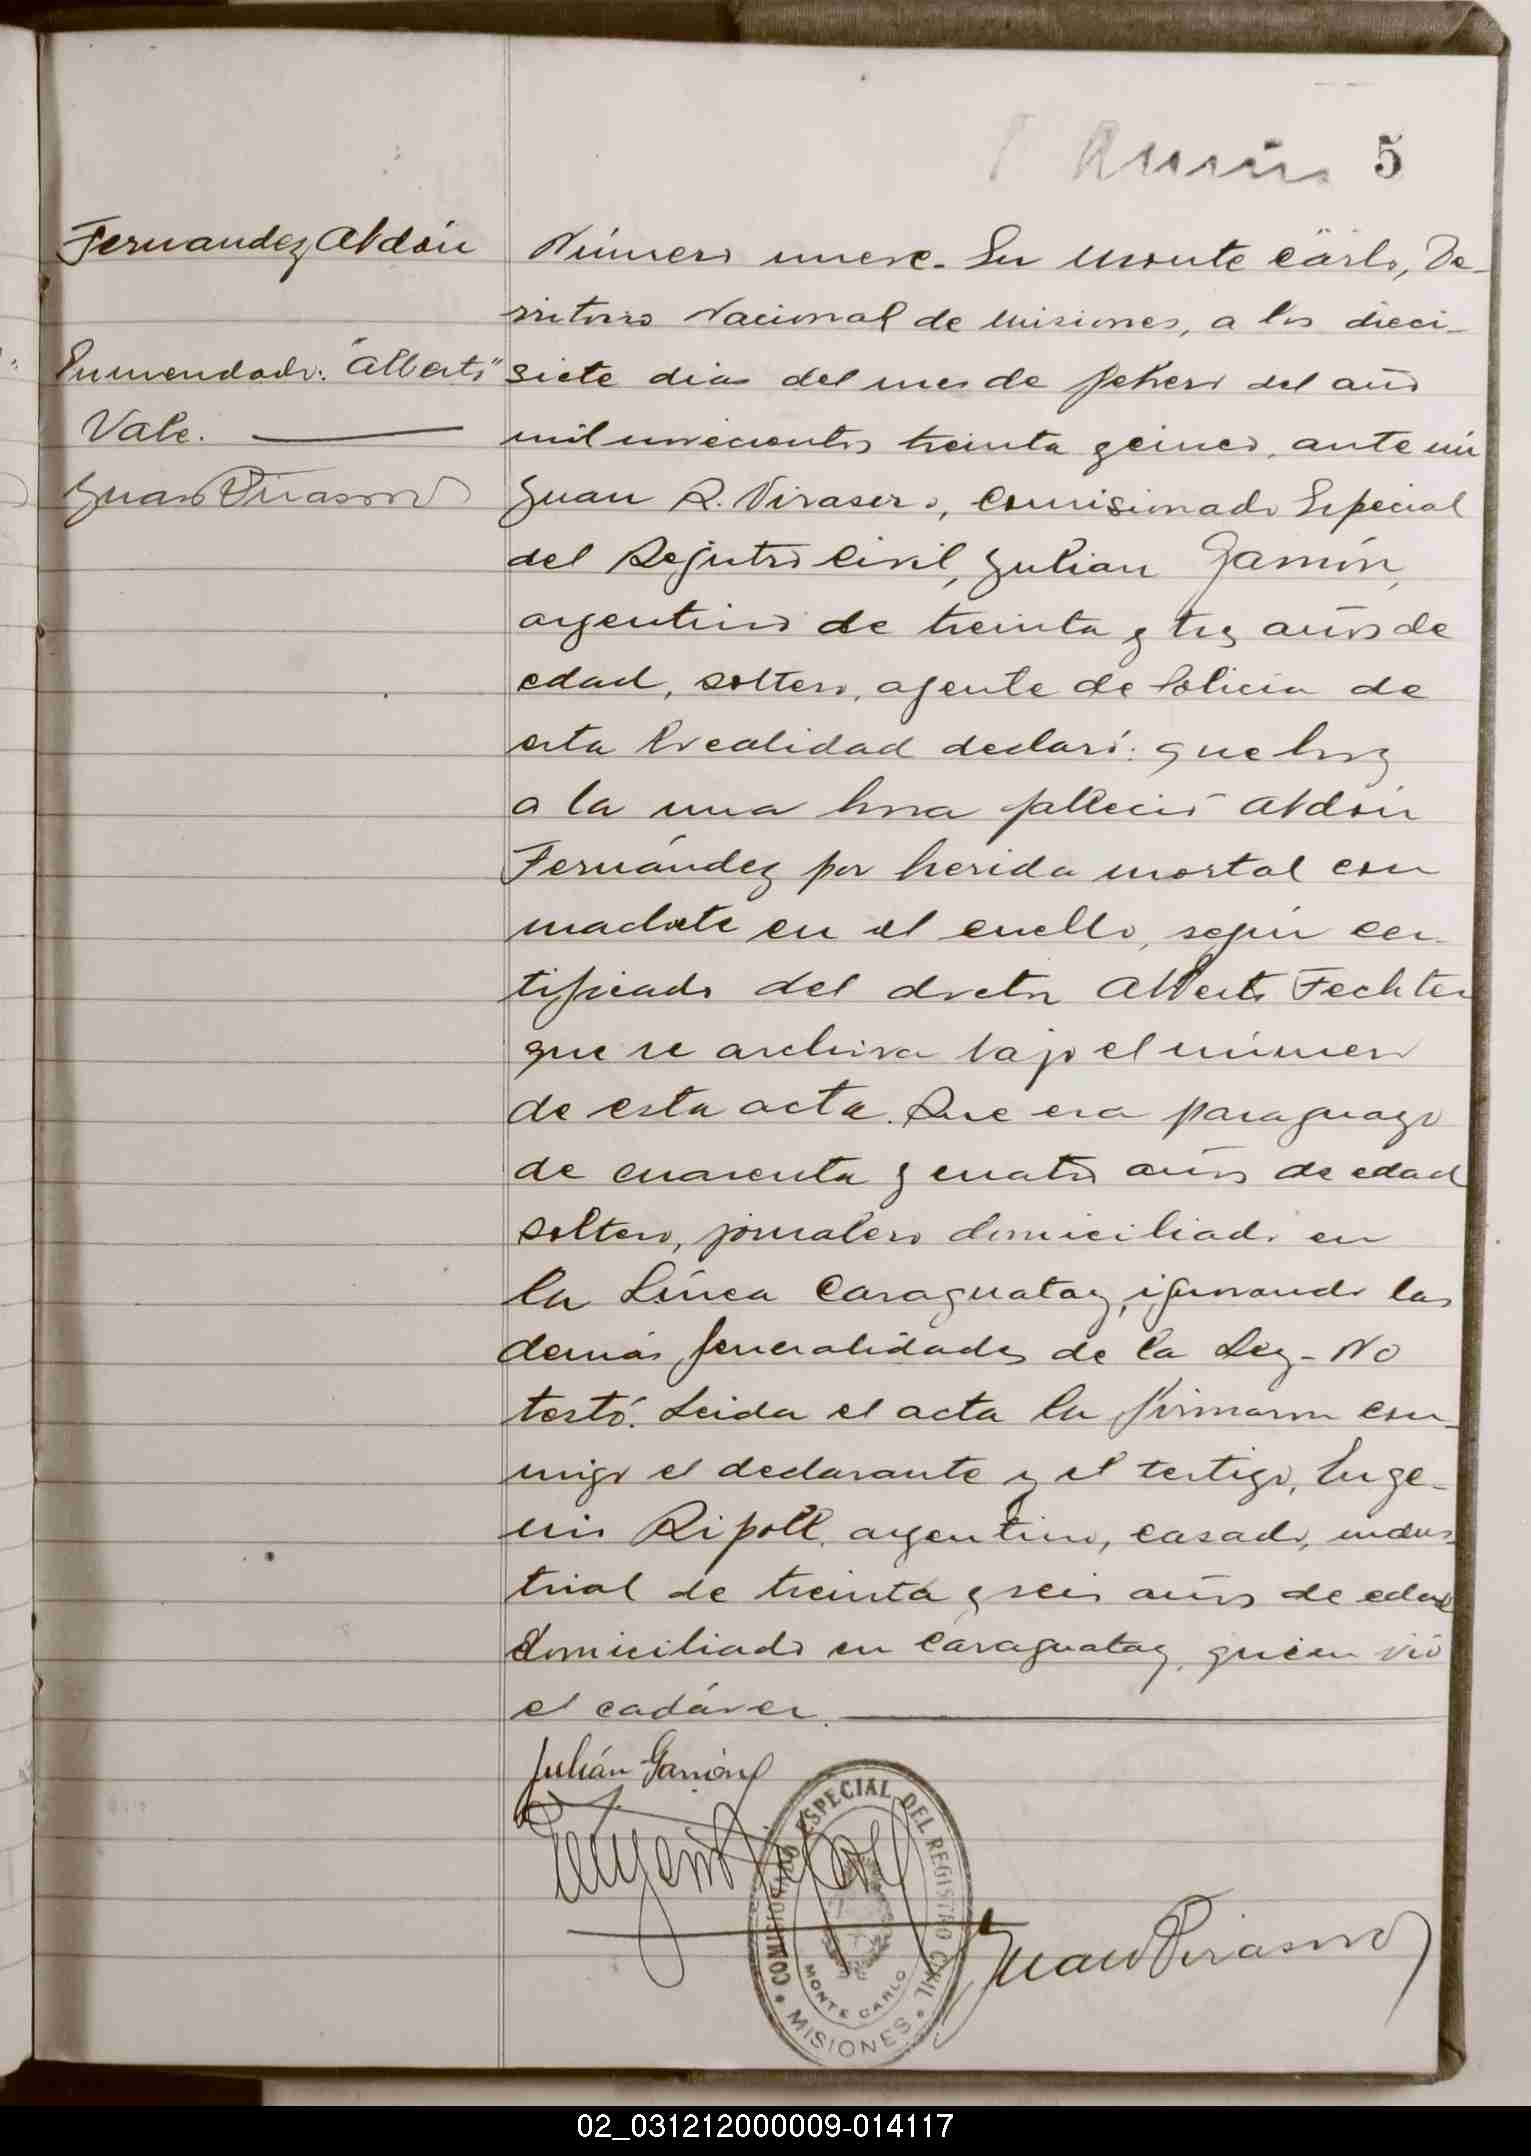 5
Fernandez Abdón
Enmendado: "Alberto"
Vale.
Juan Virasoro
Número nueve. En Monte Cárlo, Te-
rritorio Nacional de Misiones, a los dieci-
siete dias del mes de febrero del año
mil novecientos treinta y cinco, ante mi
Juan R. Virasoro, Comisionado Especial
del Registro Civil, Julian
argentino de treinta y tres años de
edad, soltero, agente de Policia de
esta localidad declaró: que hoy
a la una hora falleció Abdón
Fernández por herida mortal con
machete en el cuello, según cer-
tificado del doctor Alberto Fechter
que se archiva bajo el número
de esta acta. Que era paraguayo
de cuarenta y cuatro años de edad
soltero, jornalero domiciliado en
la Línea Caraguatay, ignorando las
demás generalidades de la Ley - No
testó. Leida el acta la firmaron con-
migo el declarante y el testigo, Euge-
nio Ripoll, argentino, casado, indus-
trial de treinta y seis años de edad
domiciliado en Caraguatay, quien vió
el cadáver.
Julián
Eugenio Ripoll
COMISIONADO ESPECIAL DEL REGISTRO CIVIL
MONTE CARLO
MISIONES
Juan Virasoro
02_031212000009-014117